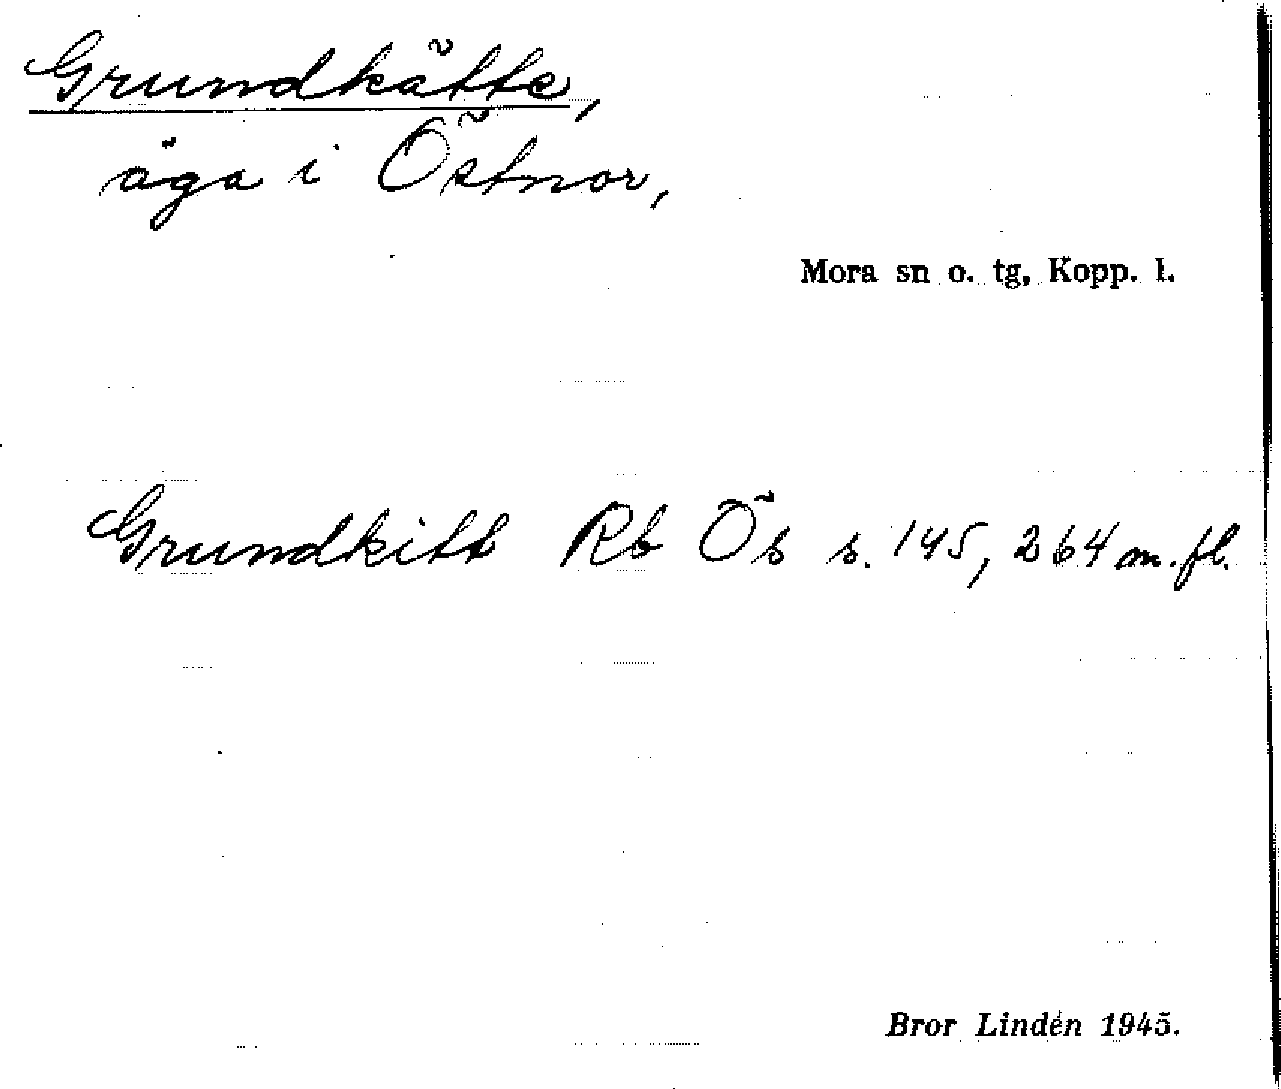 Grundkätte,
äga i Östnor,
Mora sn o. tg, Kopp. l.
Grundkitt Rb Ös s. 145, 264 m. fl.
Bror Lindén 1945.